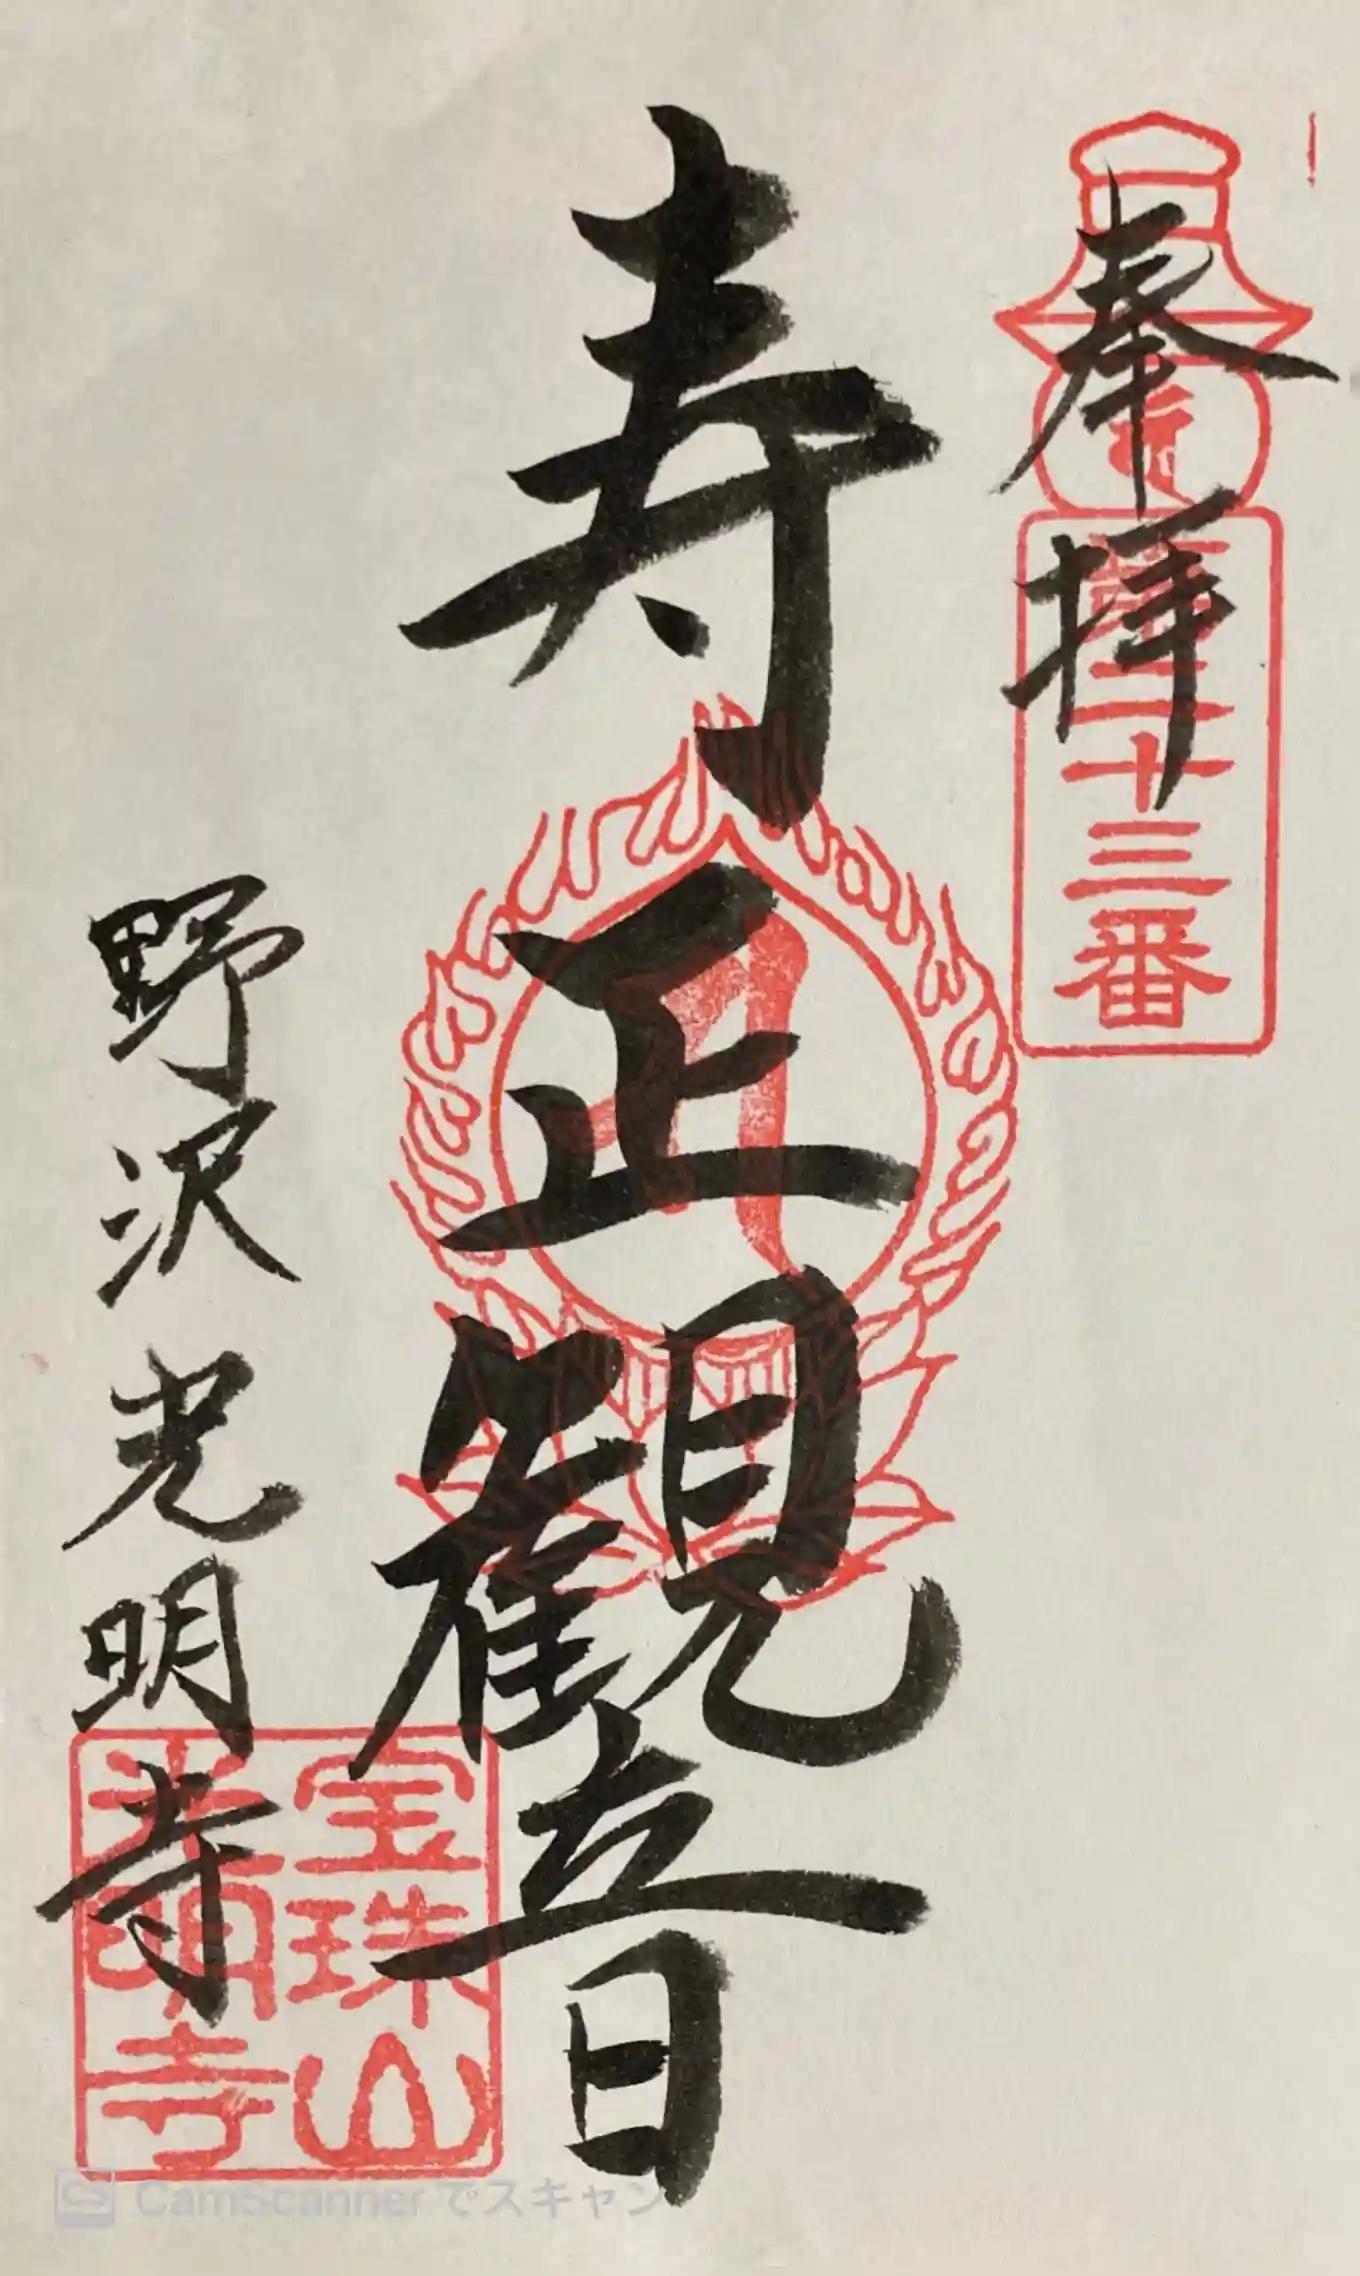 奉拝
第二十三番
寿正観音
野沢光明寺
宝珠山
光明寺
CamScannerでスキャン